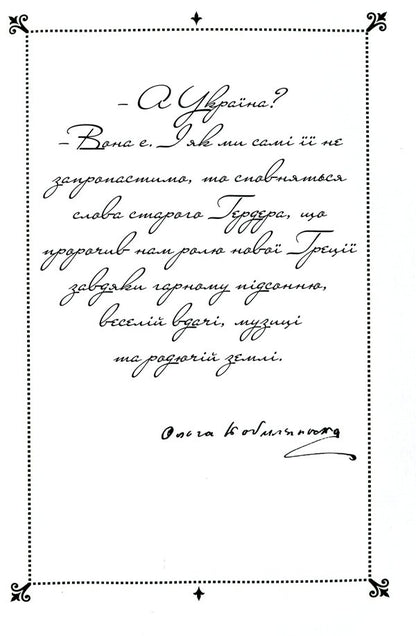 – А Україна?
– Вона є. І як ми самі її не
запропастимо, то сповняться
слова старого Гердера, що
пророчив нам ролю нової Греції
завдяки гарному підсонню,
веселій вдачі, музиці
та родючій землі.
Ольга Кобилянська